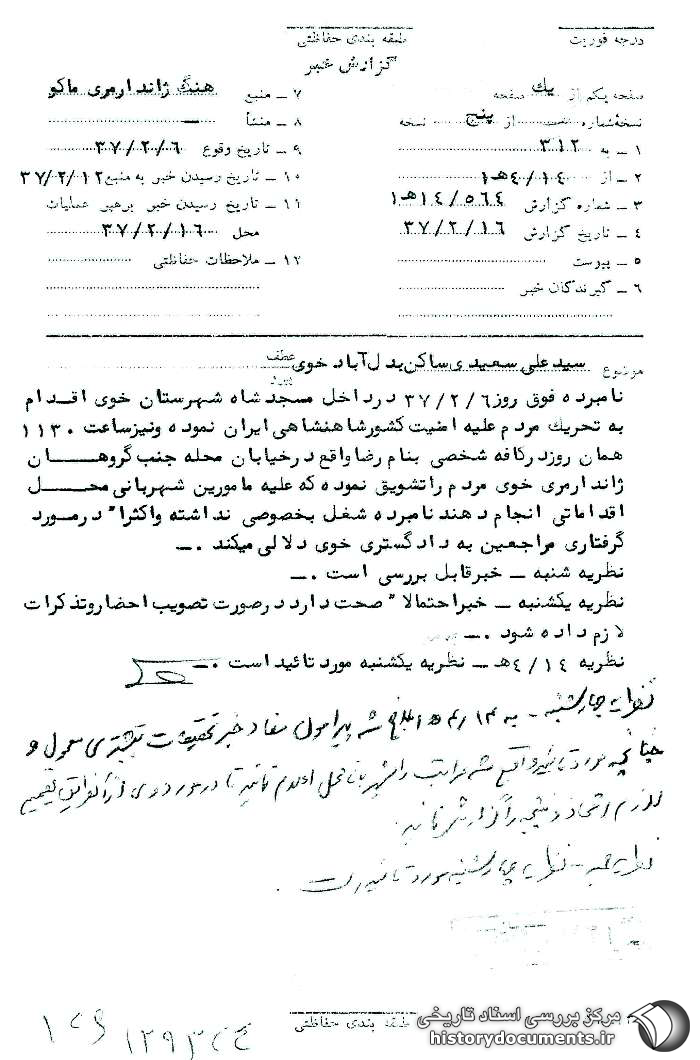 درجه فوریت
طبقه بندی حفاظتی
گزارش خبر
صفحه یکم از یك صفحه
نسخه شماره از پنج نسخه
۱ ـ به ۳۱۲
۲ ـ از ۴/۱۴هـ۱
۳ ـ شماره گزارش ۱۴/۵۶۴هـ۱
۴ ـ تاریخ گزارش ۳۷/۲/۱۶
۵ ـ پیوست
۶ ـ گیرندگان خبر
۷ ـ منبع هنگ ژاندارمری ماکو
۸ ـ منشأ ـ
۹ ـ تاریخ وقوع ۳۷/۲/۶
۱۰ ـ تاریخ رسیدن خبر به منبع ۳۷/۲/۱۲
۱۱ ـ تاریخ رسیدن خبر برهبر عملیات
محل ۳۷/۲/۱۶
۱۲ ـ ملاحظات حفاظتی
موضوع سیدعلی سعیدی ساکن بدل آباد خوی عطف
نامبرده فوق روز ۳۷/۲/۶ درداخل مسجد شاه شهرستان خوی اقدام
به تحریك مردم علیه امنیت کشورشاهنشاهی ایران نموده ونیزساعت ۱۱۳۰
همان روزد رکافه شخصی بنام رضا واقع درخیابان محله جنب گروهان
ژاندارمری خوی مردم راتشویق نموده که علیه مامورین شهربانی محل
اقداماتی انجام دهند نامبرده شغل بخصوصی نداشته واکثرا" درمورد
گرفتاری مراجعین به دادگستری خوی دلالی میکند .ـ
نظریه شنبه ـ خبرقابل بررسی است .ـ
نظریه یکشنبه ـ خبراحتمالا" صحت دارد درصورت تصویب احضاروتذکرات
لازم داده شود .ـ
نظریه ۴/۱۴هـ ـ نظریه یکشنبه مورد تائید است .ـ
نظریه چهارشنبه ـ به ۴/۱۴ه ابلاغ شد پیرامون مفاد خبر تحقیقات بیشتری معمول و
چنانچه مورد تائید واقع شد مراتب را شهربانی محل اعلام نمائید تا در مورد وی از آنطریق تصمیم
لازم اتخاذ و نتیجه را گزارش نمائید.
نظریه جمعه ـ نظریه چهارشنبه مورد تائید است .
طبقه بندی حفاظتی
مرکز بررسی اسناد تاریخی
historydocuments.ir